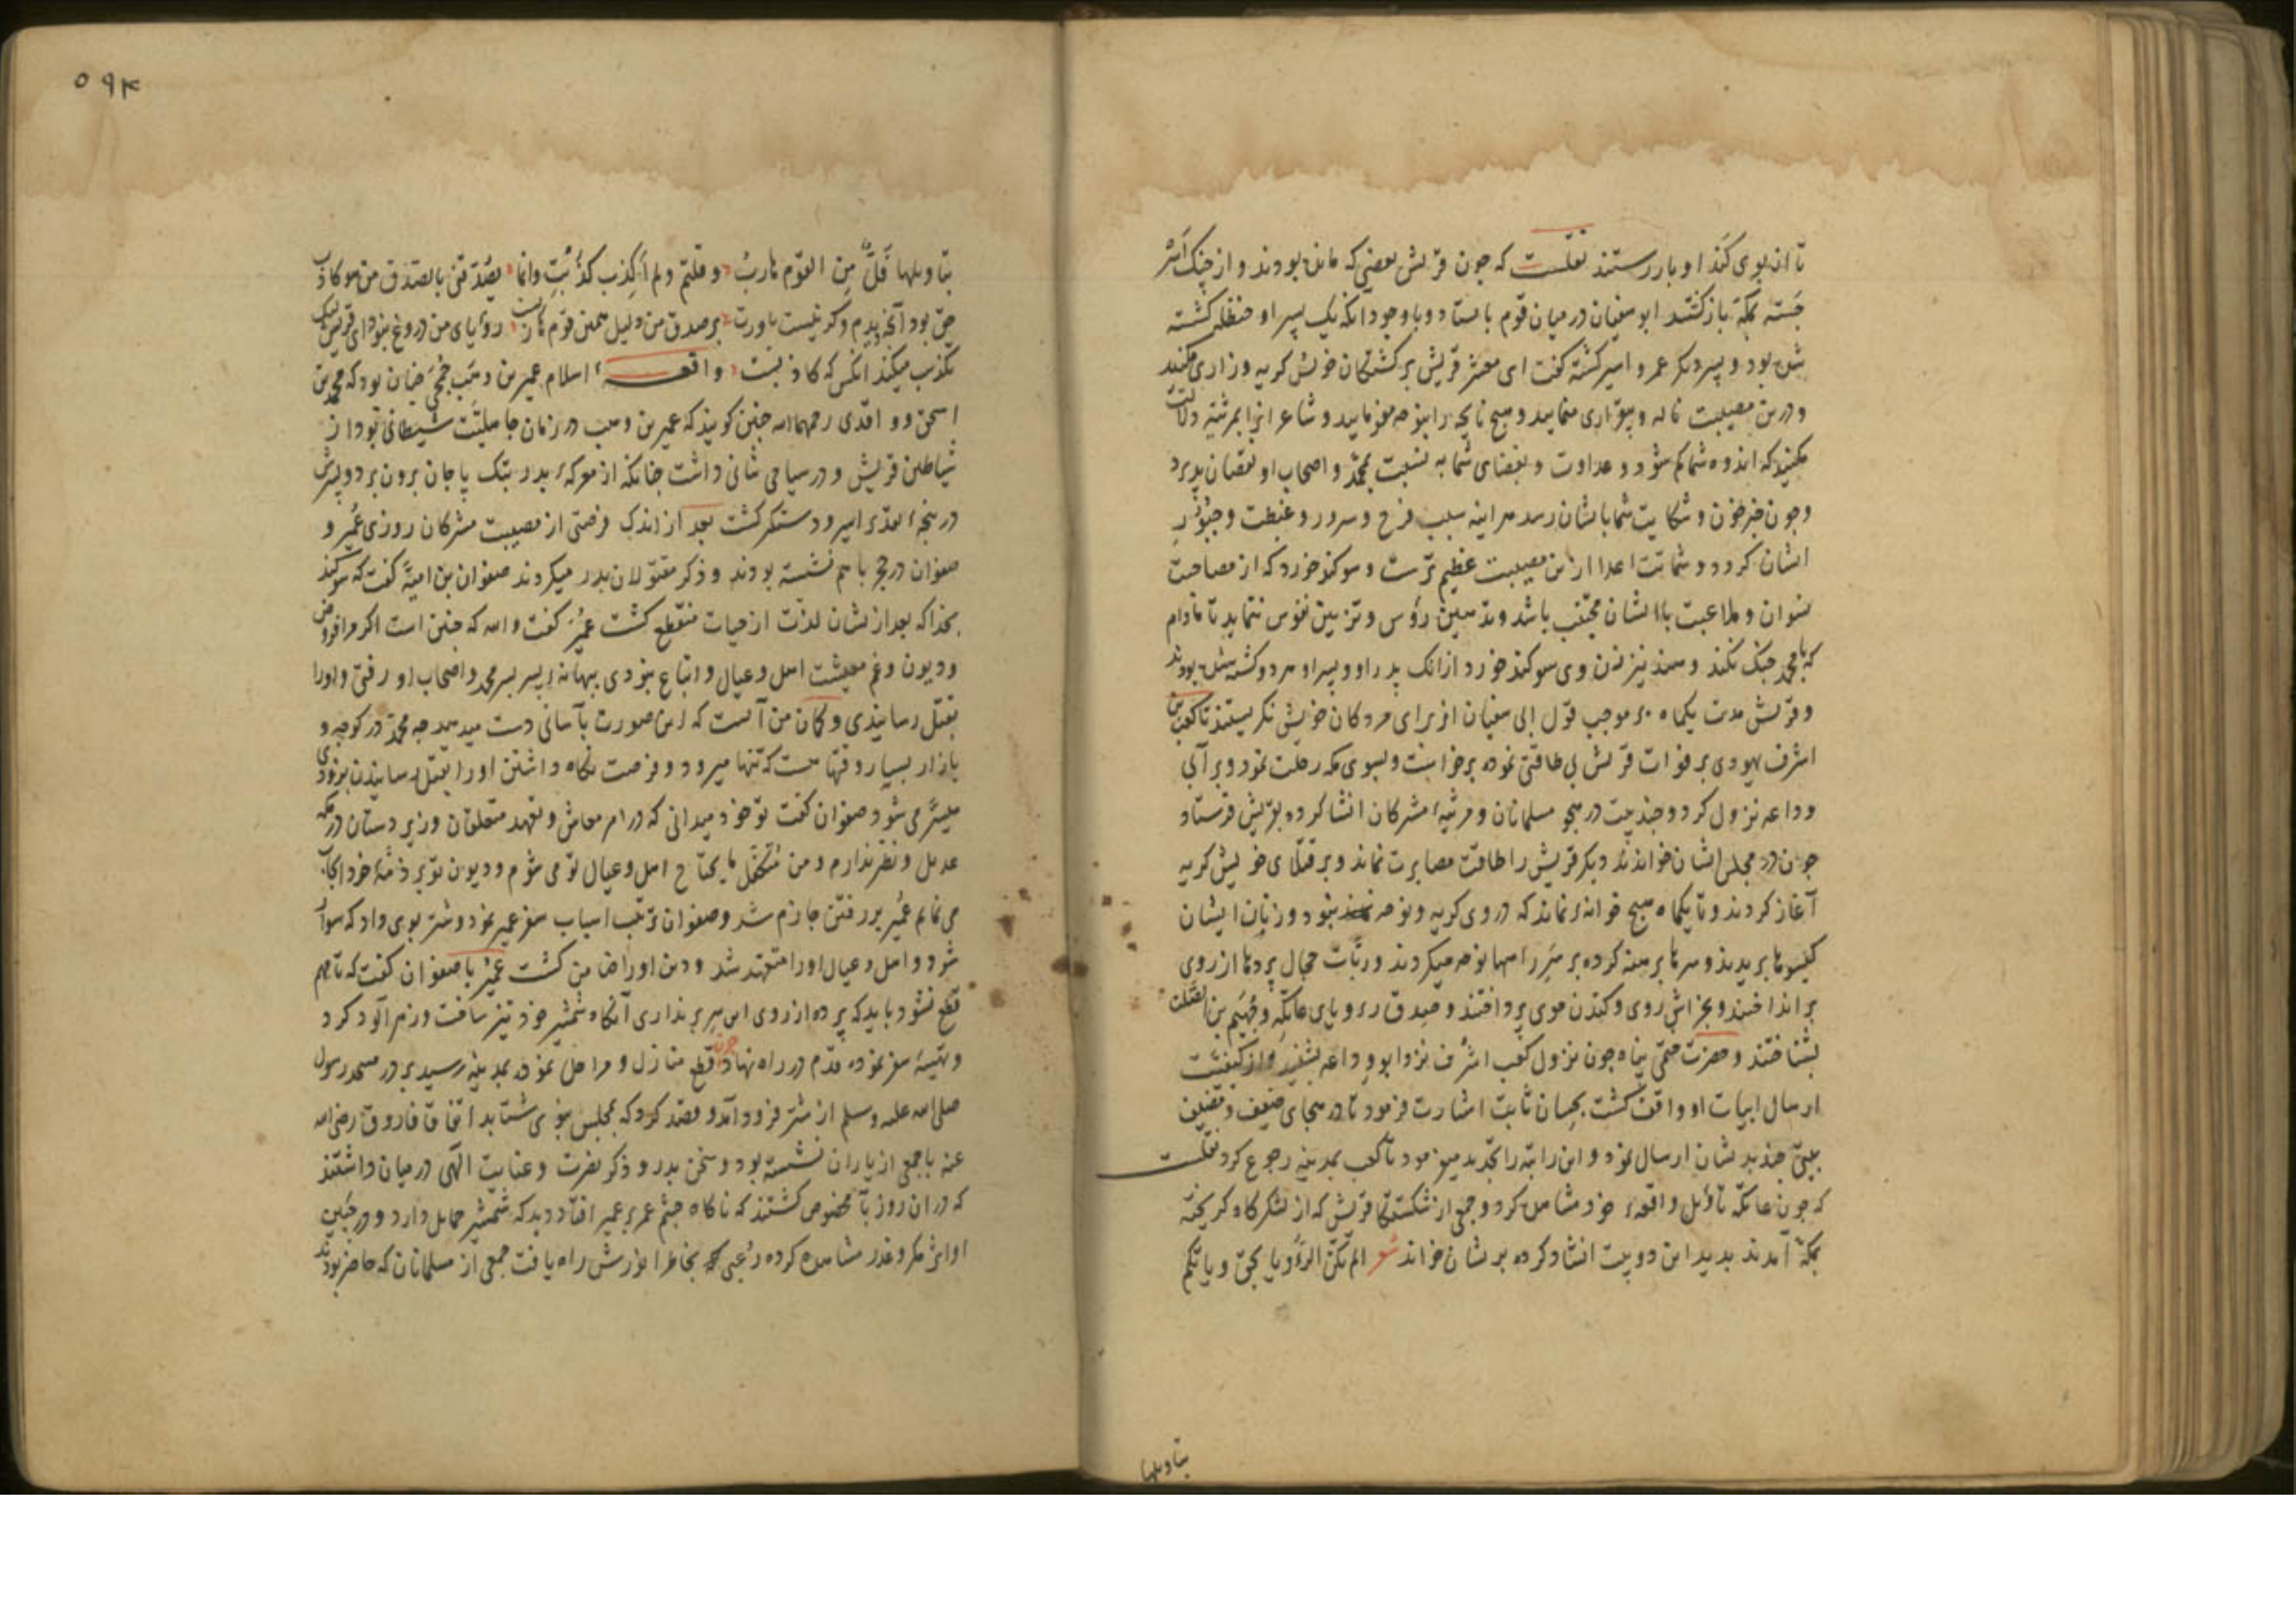 تا ان بوی کند او باز رستند نقلست که جون قریش بعضی که مانده بودند و از جنک اسر
جسته بمکه باز کشتند ابو سفیان در میان قوم بایستاد و با وجود آنکه یک پسر او حنظله کشته
شده بود و پسر دیکر عمرو اسیر کشته کفت ای معشر قریش بر کشتکان خویش کریه و زاری مکنید
و درین مصیبت ناله و بیقراری منمایید و هیچ نایحه را بنوحه مفرمایید و شاعر انرا بمرثیه دلالت
مکنید که اندوه شما کم شود و عداوت و بغضای شما به نسبت بمحمد و اصحاب او نقصان پذیرد
و جون خبر حزن و شکایت شما بایشان رسد هر اینه سبب فرح و سرور و غبطت و حبور
ایشان کردد و شماتت اعدا ازین مصیبت عظیم ترست و سوکند خورد که از مصاحبت
نسوان و ملاعبت با ایشان مجتنب باشد و تدهین رؤس و تزیین نفوس ننماید تا مادام
که با محمد جنک نکند و هند نیز زن وی سوکند خورد از انک پدر او و پسر او هر دو کشته شده بودند
و قریش مدت یکماه بر موجب قول ابی سفیان از برای مردکان خویش نکریستند تا کعب بن
اشرف یهودی بر فوات قریش بی طاقتی نموده برخواست و بسوی مکه رحلت نمود و بر آبی
وداعه نزول کرد و جند بیت در هجو مسلمانان و مرثیه مشرکان انشا کرده بقریش فرستاد
جون در مجلس ایشان خواندند دیکر قریش را طاقت مصابرت نماند و بر قتلای خویش کریه
آغاز کردند و تا یکماه هیچ خانه نماند که در وی کریه و نوحه نبود و زنان ایشان
کیسوها بریدند و سرها برهنه کرده بر سر راهها نوحه میکردند و ربات حجال پردها از روی
بر انداختند و بخراش روی و کندن موی پرداختند و صدق رویای عاتکه و جهیم بن الصلت
بشناختند و حضرت ختمی پناه جون نزول کعب اشرف نزد ابو وداعه بشنید و از کیفیت
ارسال ابیات او واقف کشت بحسان ثابت اشارت فرمود تا در هجای ضیف و مضیف
بیتی جند بدیشان ارسال نمود و این رابته را تجدید میفرمود تا کعب بمدینه رجوع کرد نقلست
که جون عاتکه تاویل واقعه خود مشاهده کرد و جمعی از شکستکان قریش که از لشکر کاه کریخته
بمکه آمدند بدید این دو بیت انشاد کرده بریشان خواند شعر الم تکن الرؤیا بحق و یاتکم
بتاویلها
۵۹۴
بتاویلها فل من القوم هارب و قلتم و لم اکذب کذبت و انما یصدقنی بالصدق من هو کاذب
حق بود آنجه دیدم و کر نیست باورت بر صدق من دلیل همین قوم هاربست رؤیای من دروغ نبود ای قریش لیک
تکذیب میکند انکس که کاذبست واقعه اسلام عمیر بن وهب جمحی جنان بود که محمد بن
اسحق و واقدی رحمهما الله جنین کویند که عمیر بن وهب در زمان جاهلیت شیطانی بود از
شیاطین قریش و در سیاحی شانی داشت جنانکه از معرکه بدر بتک پا جان برون برد و پسرش
در پنجه تعدی اسیر و دستکیر کشت بعد از اندک فرصتی از مصیبت مشرکان روزی عمیر و
صفوان در حجر با هم نشسته بودند و ذکر مقتولان بدر میکردند صفوان بن امیه کفت که سوکند
بخدا که بعد از یشان لذت از حیات منقطع کشت عمیر کفت والله که جنین است اکر مرا قروض
و دیون و غم معیشت اهل و عیال و اتباع نبودی ببهانه پسر بسر محمد و اصحاب او رفتی و او را
بقتل رسانیدی و کمان من آنست که این صورت بآسانی دست میدهد جه محمد در کوجه و
بازار بسیار وقتها هست که تنها میرود و فرصت نکاه داشتن او را بقتل رسانیدن بزودی
میسر می شود صفوان کفت تو خود میدانی که در امر معاش و تعهد متعلقان و زیر دستان در مکه
عدیل و نظیر ندارم و من متکفل مایحتاج اهل و عیال تو می شوم و دیون تو بر ذمه خود ایجاب
می نمایم عمیر بر رفتن جازم شد و صفوان ترتیب اسباب سفر عمیر نمود و شتر بوی داد که سوار
شود و اهل و عیال او را متعهد شد و دین او را ضامن کشت عمیر با صفوان کفت که تا مهم
قطع نشود باید که پرده از روی این سر بر نداری آنکاه شمشیر خود تیز ساخت و زهر آلود کرد
و تهیه سفر نموده قدم در راه نهاد جون قطع منازل و مراحل نموده بمدینه رسید بر در مسجد رسول
صلی الله علیه و سلم از شتر فرود آمد و قصد کرد که بمجلس نبوی شتابد اتفاقا فاروق رضی الله
عنه با جمعی از یاران نشسته بود و سخن بدر و ذکر نصرت و عنایت الهی در میان داشتند
که در ان روز بآن مخصوص کشتند که ناکاه جشم عمر بر عمیر افتاد دید که شمشیر حمایل دارد و در جبین
او اثر مکر و غدر مشاهده کرده رعبی بخاطر انورش راه یافت جمعی از مسلمانان که حاضر بودند